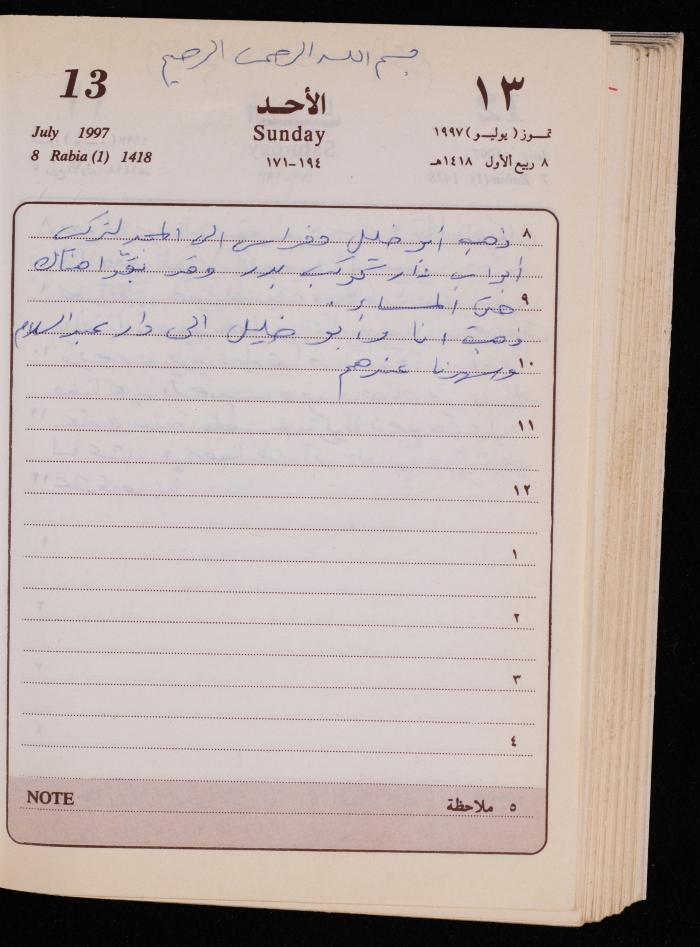 بسم الله الرحمن الرحيم
13
الأحد
١٣
July 1997
Sunday
تمـوز (يوليـو) ١٩٩٧
8 Rabia (1) 1418
١٩٤-١٧١
٨ ربيع الأول ١٤١٨هـ
٨
ذهب أبو خليل وفراس الى المجد لتركيب
أبواب دار كوكب بدر وقد بقوا هناك
٩
حتى المساء.
ذهبت انا وأبو خليل الى دار عبد السلام
١٠
وسهرنا عندهم
١١
١٢
١
٢
٣
٤
NOTE
٥ ملاحظة